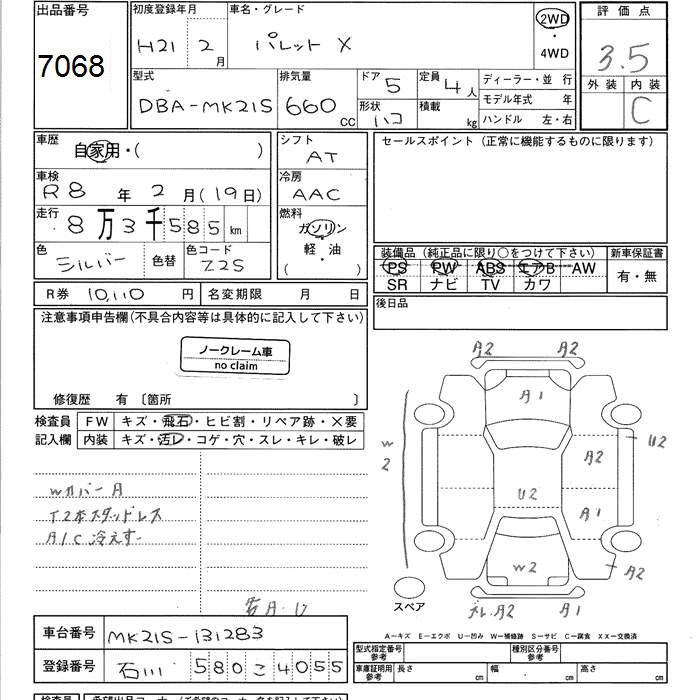 出品番号 初度登録年月 車名・グレード 2WD・4WD 評価点
7068 H21 2月 パレット X 3.5
外装 内装
C
型式 排気量 ドア 5 定員 4人 ディーラー・並 行
DBA-MK21S 660cc 形状 ハコ 積載 kg モデル年式 年
ハンドル 左・右
車歴 自家用・( ) シフト AT
セールスポイント（正常に機能するものに限ります）
車検 R8年 2月(19日) 冷房 AAC
走行 8万3千585km 燃料 ガソリン
軽・油
( ・ )
色 シルバー 色替 色コード Z2S
装備品（純正品に限り○をつけて下さい） 新車保証書
PS PW ABS エアB AW 有・無
SR ナビ TV カワ
R券 10,110円 名変期限 月 日
後日品
注意事項申告欄(不具合内容等は具体的に記入して下さい)
ノークレーム車
no claim
修復歴 有〔箇所 〕
検査員記入欄 FW キズ・飛石・ヒビ割・リペア跡・X要
内装 キズ・汚レ・コゲ・穴・スレ・キレ・破レ
A2 A2
A1
W2
U2
A2
U2
A1
W2
A2
A2 A1
スペア
Wカバー A
T2本スタッドレス
A/C 冷えず
A…キズ E…エクボ U…凹み W…補修跡 S…サビ C…腐食 XX…交換済
車台番号 MK21S-131283
登録番号 石川 580 こ 4055
型式指定番号 参考 種別区分番号 参考
車庫証明用 参考 長さ cm 幅 cm 高さ cm